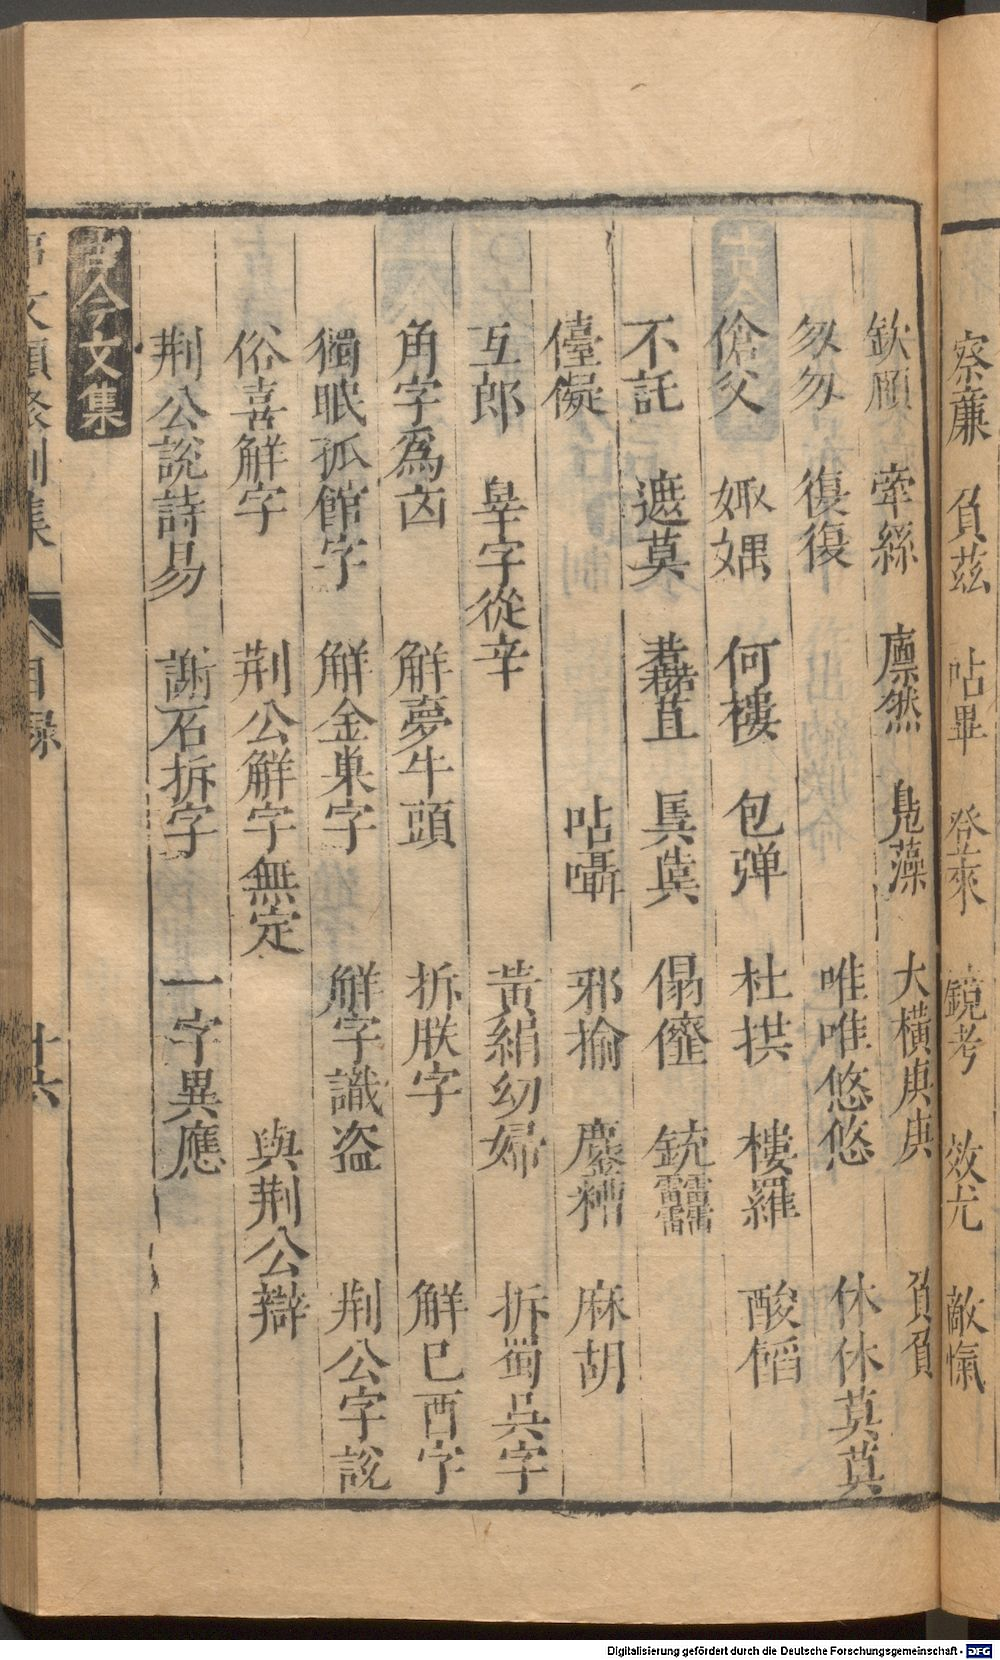 察廉 負茲 呫畢 登萊 鏡考 效尤 敵愾
欽頠 牽絲 凜然 鳧藻 大橫庚庚 負負
匆匆 復復 唯唯悠悠 休休莫莫
傖父 娵媀 何樓 包弹 杜拱 樓羅 酸餡
不託 遮莫 苴 傝 銃
儓儗 呫囁 邪揄 鏖糟 麻胡
互郎 辠字從辛 黃絹幼婦 拆蜀吳字
角字爲 解夢牛頭 拆朕字 解巳酉字
獨眠孤館字 解金巢字 解字識盜 荆公字說
俗喜解字 荆公解字無定 與荆公辯
荆公說詩易 謝石拆字 一字異應
古今文集
事文類聚別集 目錄 廿六
Digitalisierung gefördert durch die Deutsche Forschungsgemeinschaft - DFG